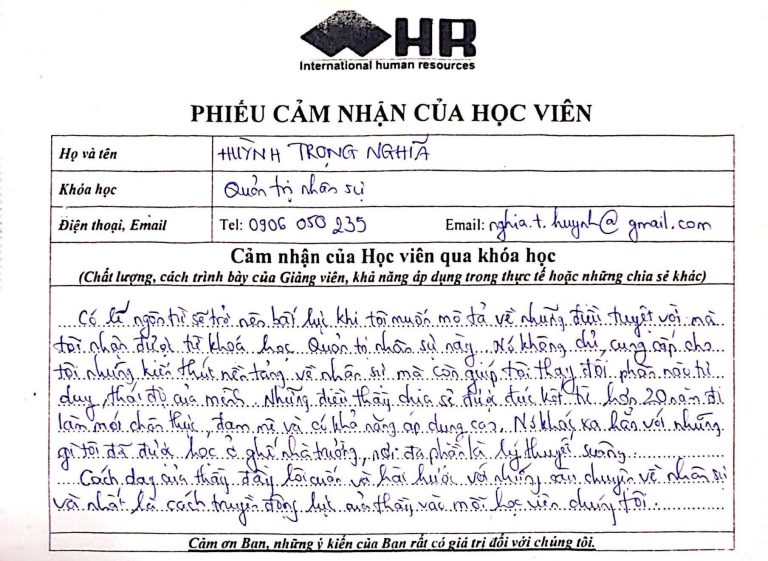 HR
International human resources
PHIẾU CẢM NHẬN CỦA HỌC VIÊN
Họ và tên HUỲNH TRỌNG NGHĨA
Khóa học Quản trị nhân sự
Điện thoại, Email Tel: 0906 050 235 Email: nghia.t.huynh@gmail.com
Cảm nhận của Học viên qua khóa học
(Chất lượng, cách trình bày của Giảng viên, khả năng áp dụng trong thực tế hoặc những chia sẻ khác)
Có lẽ ngôn từ sẽ trở nên bất lực khi tôi muốn mô tả về những điều tuyệt vời mà
tôi nhận được từ khoá học Quản trị nhân sự này. Nó không chỉ cung cấp cho
tôi những kiến thức nền tảng về nhân sự mà còn giúp tôi thay đổi phần nào tư
duy, thái độ của mình. Những điều thầy chia sẻ được đúc kết từ hơn 20 năm đi
làm nên chân thực, đam mê và có khả năng áp dụng cao. Nó khác xa hẳn với những
gì tôi đã được học ở ghế nhà trường, nơi đa phần là lý thuyết suông.
Cách dạy của thầy đầy lôi cuốn và hài hước với những câu chuyện về nhân sự
và nhất là cách truyền động lực của thầy vào mỗi học viên chúng tôi.
Cảm ơn Bạn, những ý kiến của Bạn rất có giá trị đối với chúng tôi.